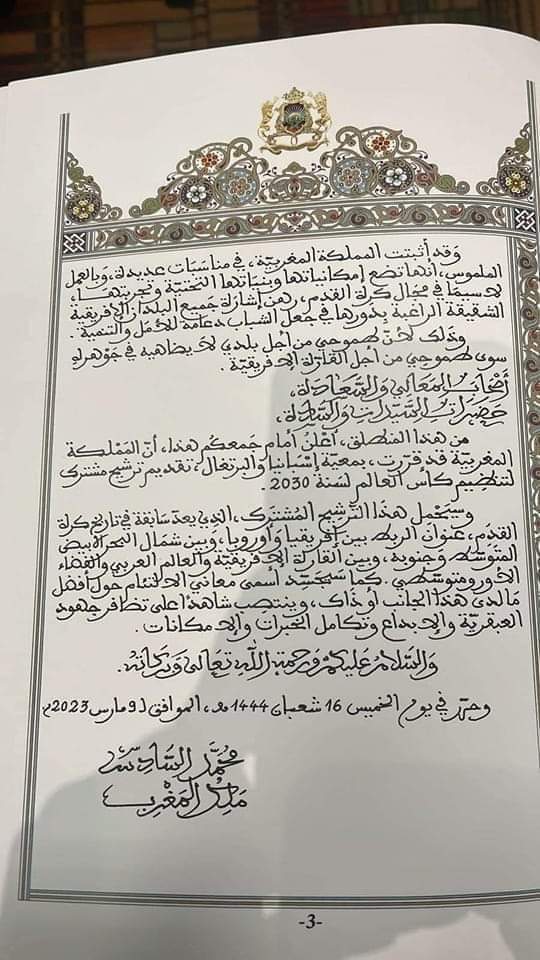 وقد أثبتت المملكة المغربية، في مناسبات عديدة، وبالعمل
الملموس، أنها تضع إمكانياتها وبنياتها التحتية وتجربتها،
لاسيما في مجال كرة القدم، رهن إشارة جميع البلدان الإفريقية
الشقيقة الراغبة بدورها في جعل الشباب دعامة للأمل والتنمية.
وذلك لأن طموحي من أجل بلدي لا يضاهيه في جوهره
سوى طموحي من أجل القارة الإفريقية.
أصحاب المعالي والسعادة،
حضرات السيدات والسادة،
من هذا المنطلق، أعلن أمام جمعكم هذا، أن المملكة
المغربية قد قررت، بمعية إسبانيا والبرتغال، تقديم ترشيح مشترك
لتنظيم كأس العالم لسنة 2030.
وسيحمل هذا الترشيح المشترك، الذي يعد سابقة في تاريخ كرة
القدم، عنوان الربط بين إفريقيا وأوروبا، وبين شمال البحر الأبيض
المتوسط وجنوبه، وبين القارة الإفريقية والعالم العربي والفضاء
الأورومتوسطي. كما سيجسد أسمى معاني الالتئام حول أفضل
ما لدى هذا الجانب أو ذاك، وينتصب شاهدا على تظافر جهود
العبقرية والإبداع وتكامل الخبرات والإمكانات.
والسلام عليكم ورحمة الله تعالى وبركاته.
وحرر في يوم الخميس 16 شعبان 1444 هـ، الموافق لـ 9 مارس 2023م
محمد السادس
ملك المغرب
-3-